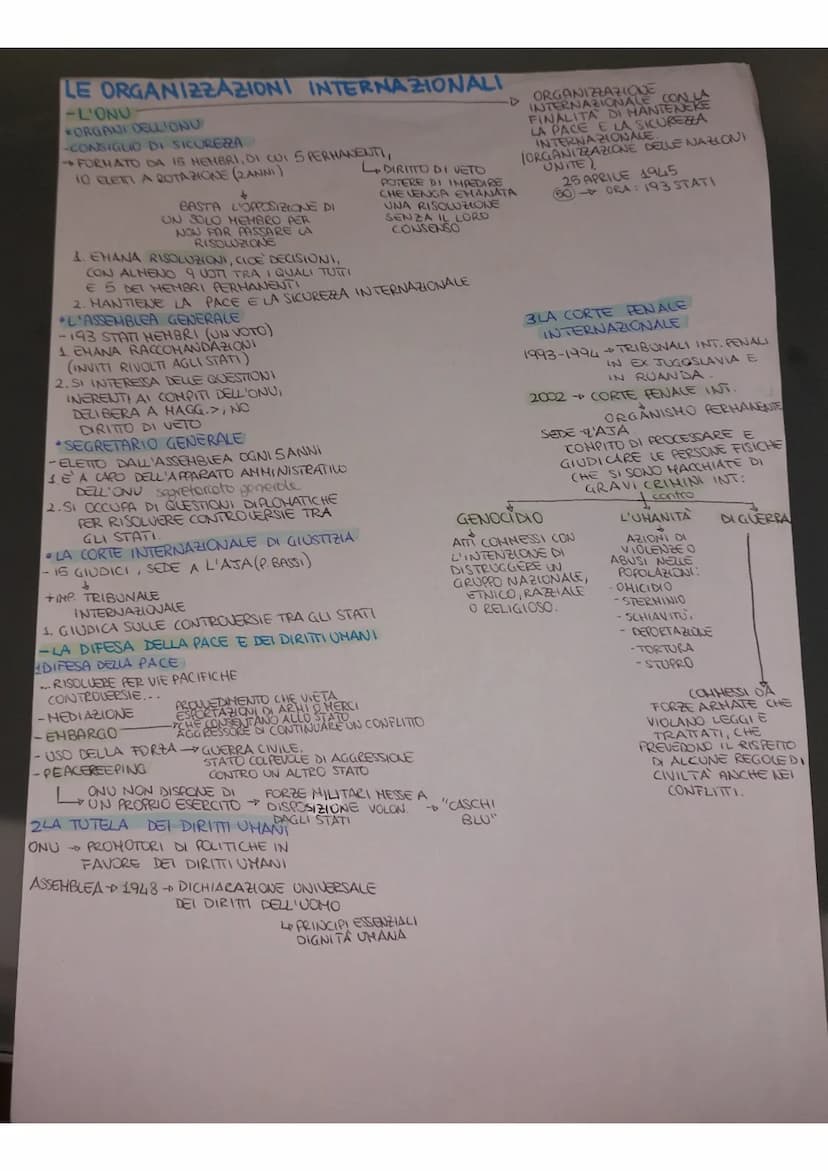 LE ORGANIZZAZIONI INTERNAZIONALI
- L'ONU
ORGANIZZAZIONE
INTERNAZIONALE CON LA
FINALITÀ DI MANTENERE
LA PACE E LA SICUREZZA
INTERNAZIONALE.
(ORGANIZZAZIONE DELLE NAZIONI
UNITE).
25 APRILE 1945
50 → ORA: 193 STATI
• ORGANI DELL'ONU
- CONSIGLIO DI SICUREZZA
→ FORMATO DA 15 MEMBRI, DI CUI 5 PERMANENTI,
10 ELETI A ROTAZIONE (2 ANNI)
DIRITTO DI VETO
POTERE DI IMPEDIRE
CHE VENGA EMANATA
UNA RISOLUZIONE
SENZA IL LORO
CONSENSO
BASTA L'OPPOSIZIONE DI
UN SOLO MEMBRO PER
NON FAR PASSARE LA
RISOLUZIONE
1. EMANA RISOLUZIONI, CIOÈ DECISIONI,
CON ALMENO 9 VOTI TRA I QUALI TUTTI
E 5 DEI MEMBRI PERMANENTI
2. MANTIENE LA PACE E LA SICUREZZA INTERNAZIONALE
• L'ASSEMBLEA GENERALE
- 193 STATI MEMBRI (UN VOTO)
1. EMANA RACCOMANDAZIONI
(INVITI RIVOLTI AGLI STATI)
2. SI INTERESSA DELLE QUESTIONI
INERENTI AI COMPITI DELL'ONU,
DELIBERA A MAGG. >, NO
DIRITTO DI VETO
• SEGRETARIO GENERALE
- ELETTO DALL'ASSEMBLEA OGNI 5 ANNI
1. È A CAPO DELL'APPARATO AMMINISTRATIVO
DELL'ONU segretariato generale
2. SI OCCUPA DI QUESTIONI DIPLOMATICHE
PER RISOLVERE CONTROVERSIE TRA
GLI STATI.
• LA CORTE INTERNAZIONALE DI GIUSTIZIA
- 15 GIUDICI, SEDE A L'AJA (P. BASSI)
+ IMP. TRIBUNALE
INTERNAZIONALE
1. GIUDICA SULLE CONTROVERSIE TRA GLI STATI
- LA DIFESA DELLA PACE E DEI DIRITTI UMANI
1 DIFESA DELLA PACE
... RISOLVERE PER VIE PACIFICHE
CONTROVERSIE...
- MEDIAZIONE
- EMBARGO → PROVVEDIMENTO CHE VIETA
ESPORTAZIONI DI ARMI O MERCI
CHE CONSENTANO ALLO STATO
AGGRESSORE DI CONTINUARE UN CONFLITTO
- USO DELLA FORZA → GUERRA CIVILE.
STATO COLPEVOLE DI AGGRESSIONE
CONTRO UN ALTRO STATO
- PEACEKEEPING
ONU NON DISPONE DI
UN PROPRIO ESERCITO → FORZE MILITARI MESSE A
DISPOSIZIONE VOLON.
DAGLI STATI
→ "CASCHI
BLU"
2 LA TUTELA DEI DIRITTI UMANI
ONU → PROMOTORI DI POLITICHE IN
FAVORE DEI DIRITTI UMANI
ASSEMBLEA → 1948 → DICHIARAZIONE UNIVERSALE
DEI DIRITTI DELL'UOMO
↳ PRINCIPI ESSENZIALI
DIGNITÀ UMANA
3. LA CORTE PENALE
INTERNAZIONALE
1993-1994 → TRIBUNALI INT. PENALI
IN EX JUGOSLAVIA E
IN RUANDA.
2002 → CORTE PENALE INT.
ORGANISMO PERMANENTE
SEDE L'AJA
COMPITO DI PROCESSARE E
GIUDICARE LE PERSONE FISICHE
CHE SI SONO MACCHIATE DI
GRAVI CRIMINI INT:
contro
GENOCIDIO
ATTI COMMESSI CON
L'INTENZIONE DI
DISTRUGGERE UN
GRUPPO NAZIONALE,
ETNICO, RAZZIALE
O RELIGIOSO.
L'UMANITÀ
AZIONI DI
VIOLENZE O
ABUSI NELLE
POPOLAZIONI:
- OMICIDIO
- STERMINIO
- SCHIAVITÙ,
- DEPORTAZIONE
- TORTURA
- STUPRO
DI GUERRA
COMMESSI DA
FORZE ARMATE CHE
VIOLANO LEGGI E
TRATTATI, CHE
PREVEDONO IL RISPETTO
DI ALCUNE REGOLE DI
CIVILTÀ ANCHE NEI
CONFLITTI.